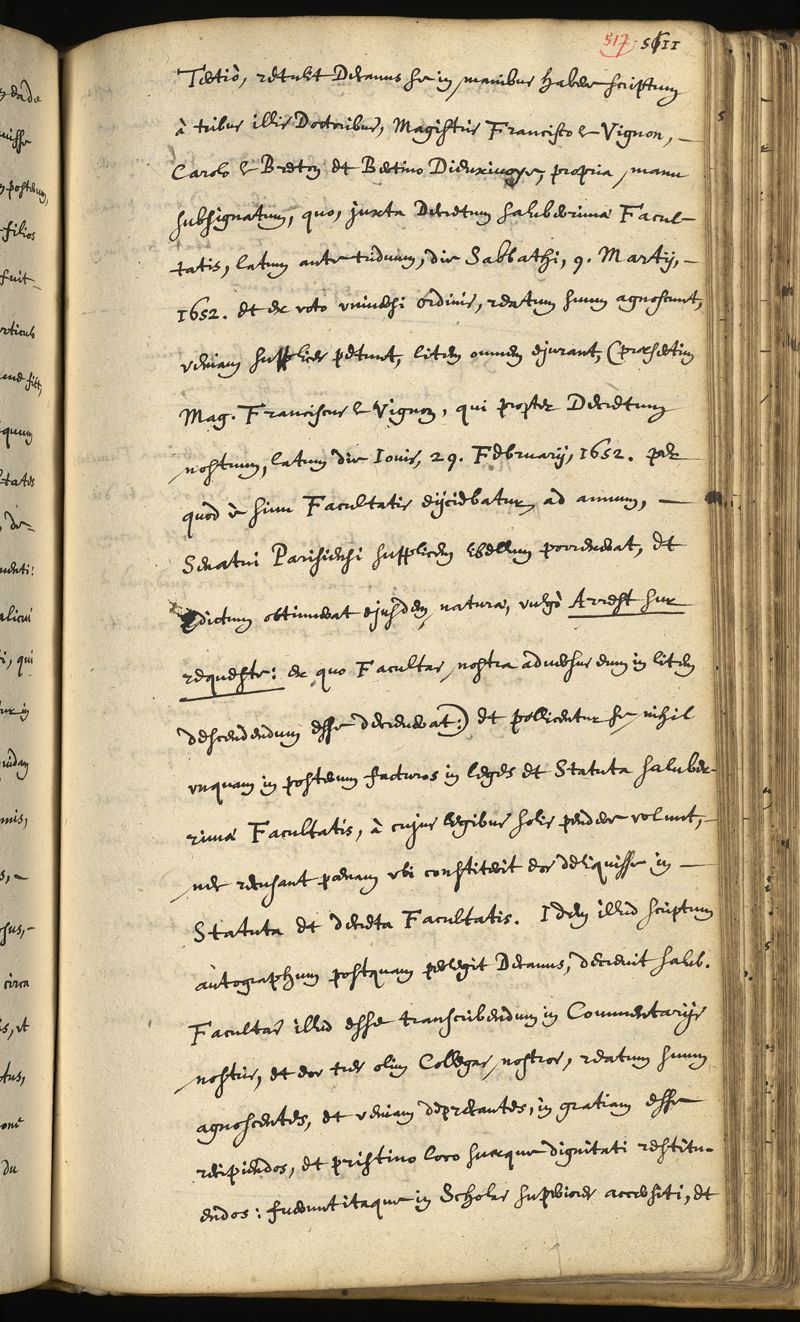 517 5611
Tertiò, retulit Decanus se in manibus habere scriptum
à tribus illis Doctoribus, Magistris Francisco le Vignon, –
Carolo le Breton et Bertino Dieuxivoye, propria manu
subsignatum, quo, juxta Decretum saluberrimæ Facul-
tatis, latum ante triduum, die Sabbathi, 9. Martij, –
1652. et ex voto vniuersi ordinis, reatum suum agnoscunt,
veniam supplices petunt, litem omnem ejurant, (præsertim
Mag. Franciscus le Vignon, qui propter Decretum
nostrum, latum die Iouis, 29. Februarij, 1652. per
quod è sinu Facultatis eijciebatur ad annum, –
Senatui Parisiensi supplicem libellum porrexerat, et
Edictum obtinuerat ejusdem naturæ, vulgò Arrest sur
requeste: ex quo Facultas nostra aduersus eum in litem
descendendum esse decreuerat:) et pollicentur se nihil
vnquam in posterum facturos in leges et Statuta saluber-
rimæ Facultatis, à cujus legibus solis pendere volunt, –
nec recusant pœnam vbi constiterit eos deliquisse in –
Statuta et decreta Facultatis. Idem illud scriptum
autographum postquam perlegit Decanus, decreuit salub.
Facultas illud esse transcribendum in Commentarijs
nostris, et eos tres olim Collegas nostros, reatum suum
agnoscentes, et veniam deprecantes, in gratiam esse
recipiendos, et pristino loco suæque dignitati restitu-
endos: fuerunt itaque in Scholas superiores accersiti, et